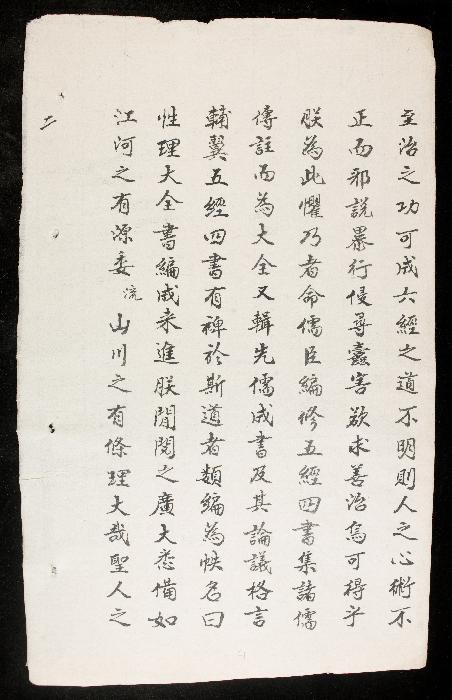 至治之功可成六經之道不明則人之心術不
正而邪說暴行侵尋蠹害欲求善治烏可得乎
朕為此懼乃者命儒臣編修五經四書集諸儒
傳註而為大全又輯先儒成書及其論議格言
輔翼五經四書有裨於斯道者類編為帙名曰
性理大全書編成来進朕間閱之廣大悉備如
江河之有源委流山川之有條理大哉聖人之
二